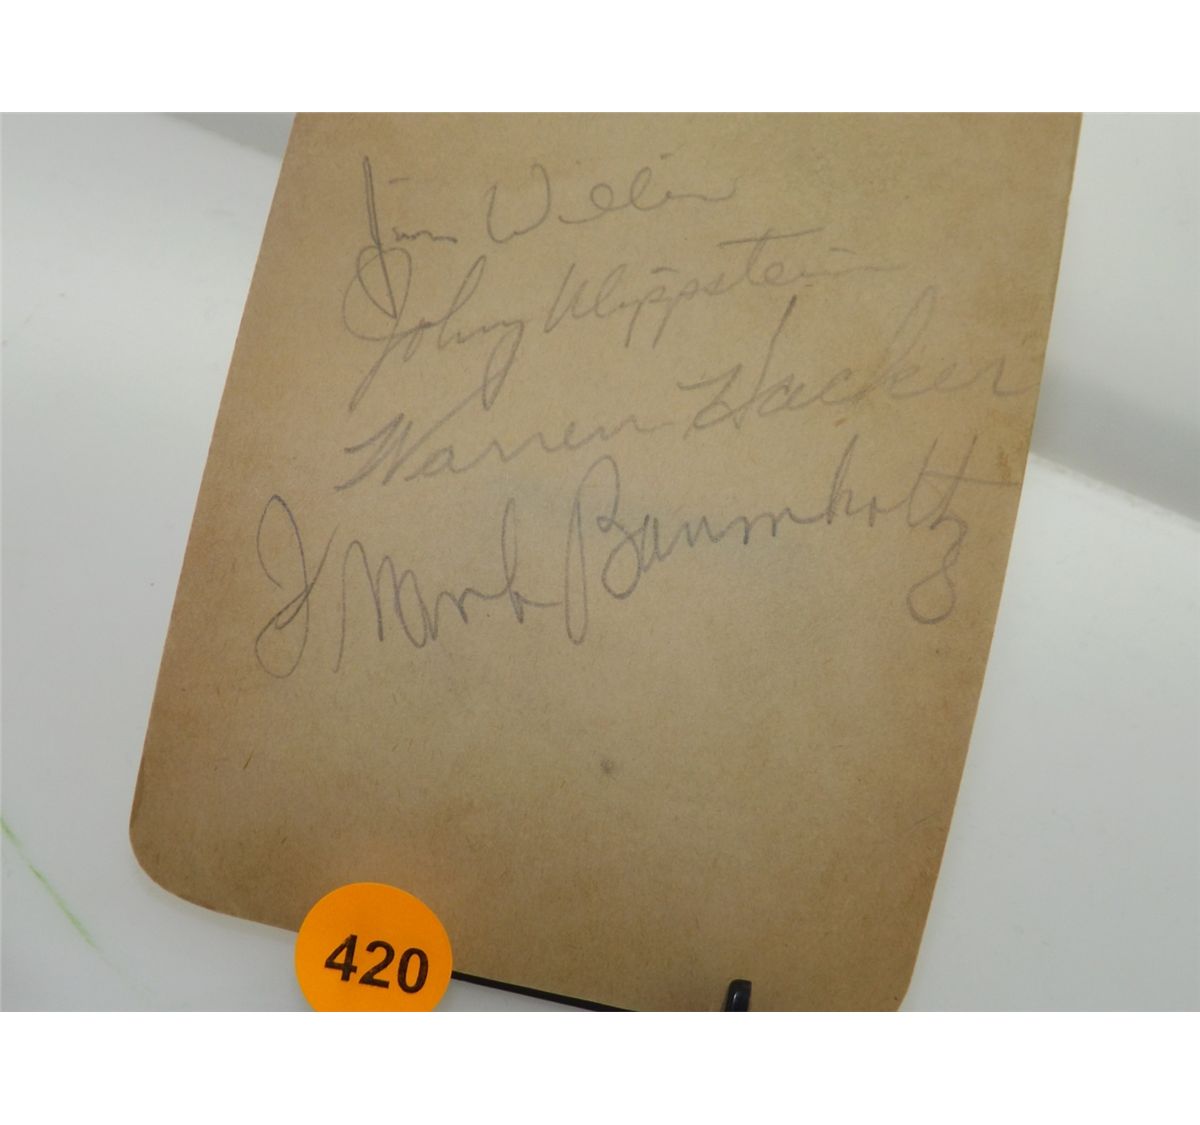 Jim Willis
Johnny Klippstein
Warren Hacker
Frank Baumholtz
420